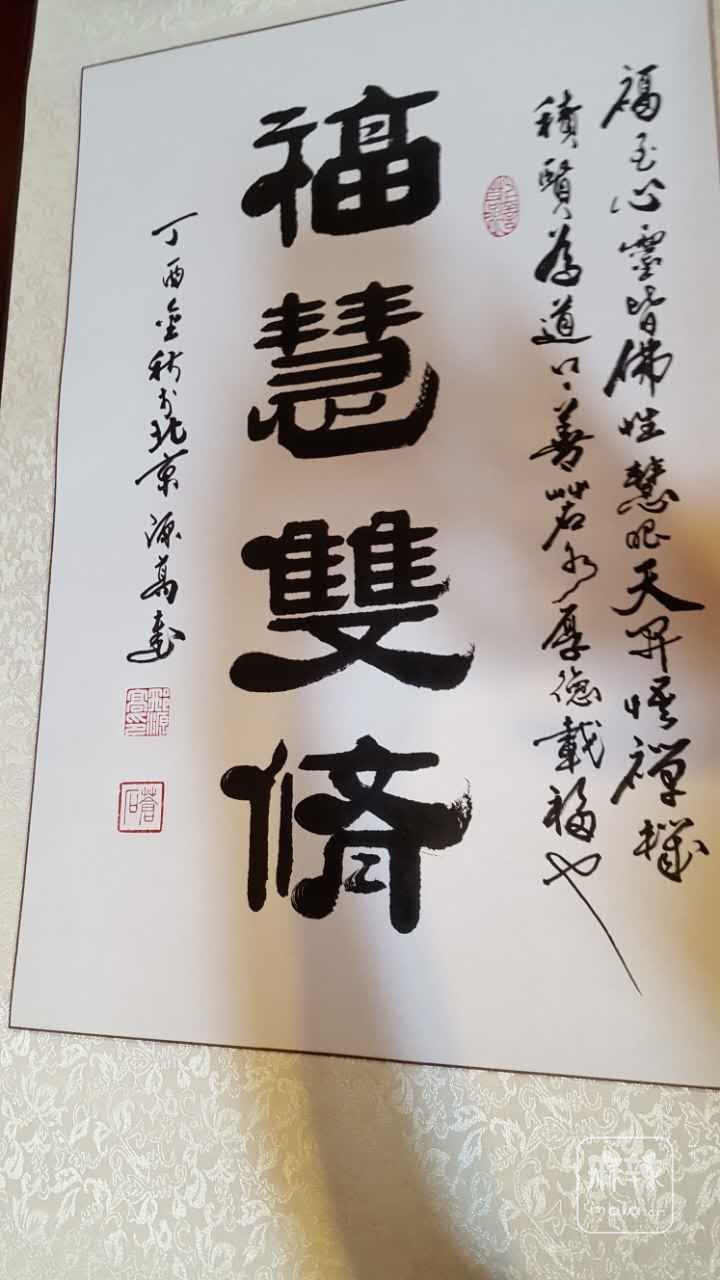 福至心靈皆佛性慧眼天開悟禪機
積賢為道上善若水厚德載福也
福慧雙脩
丁酉金秋於北京源高書
蒼石
麻辣
mala.cn